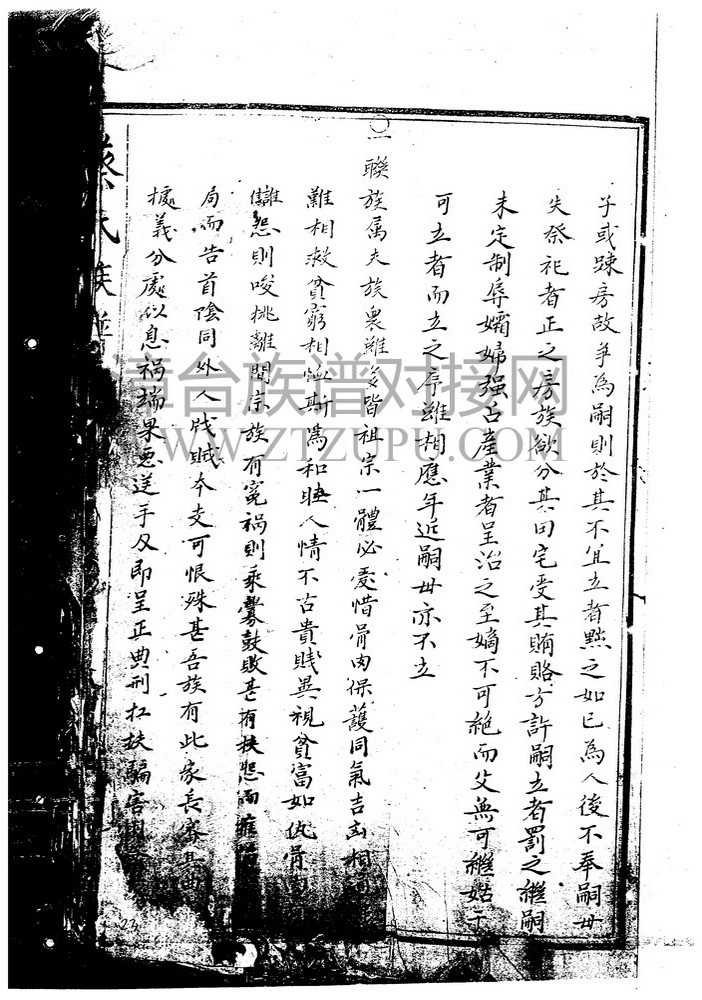 子或踈房故爭為嗣則於其不宜立者黜之如已為人後不奉嗣毋
失祭祀者正之房族欲分其田宅受其賄賂方許嗣立者罰之繼嗣
未定制辱孀婦强占產業者呈治之至嫡不可絶而父無可繼姑于
可立者而立之序雖相應年近嗣毋亦不立
一聯族属夫族衆雖多皆祖宗一體必愛惜骨肉保護同氣吉凶相
難相救貧窮相恤斯為和睦人情不古貴賤異視貧富如仇骨肉
讎怨則唆挑離間宗族有寃禍則乘釁鼓敗甚有挾怨而
局而告首陰同外人戕賊本支可恨殊甚吾族有此家長審其曲
據義分處以息禍端果惡逆手及即呈正典刑扛扶騙害
蔡氏族譜
23
章台族谱对接网
WWW.ZTZUPU.COM